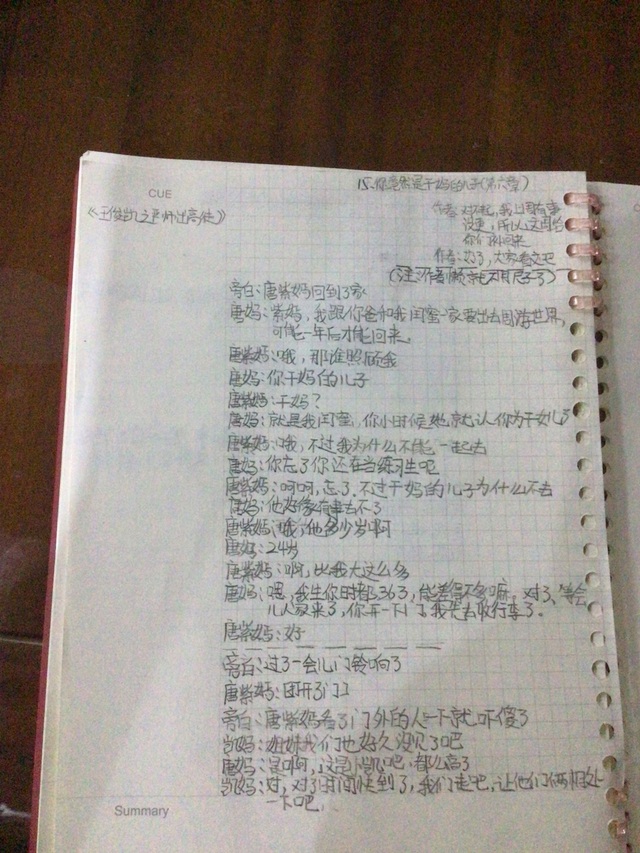 CUE
15.你竟然是干妈的儿子(第六章)
《王俊凯之严师出高徒》
作者:对不起,我上周有事
没更,所以这周给
你们补回来
作者:好了,大家看文吧
(注:作者
旁白:唐紫妈回到了家
唐妈:紫妈,我跟你爸和我闺蜜一家要出去周游世界,
可能一年后才能回来。
唐紫妈:哦,那谁照顾我
唐妈:你干妈的儿子
唐紫妈:干妈?
唐妈:就是我闺蜜,你小时候她就认你为干女儿了
唐紫妈:哦,不过我为什么不能一起去
唐妈:你忘了你还在当练习生吧
唐紫妈:呵呵,忘了,不过干妈的儿子为什么不去
唐妈:他好像有事去不了
唐紫妈:哦,他多少岁啊
唐妈:24岁
唐紫妈:啊,比我大这么多
唐妈:嗯,我生你时都36了,能差得不多嘛,对了,等会
儿人家来了,你开一下门,我先去收行李了。
唐紫妈:好
旁白:过了一会儿门铃响了
唐紫妈:打开了门
旁白:唐紫妈看了门外的人一下就吓傻了
凯妈:姐妹我们也好久没见了吧
唐妈:是啊,这是小凯吧,都么高了
凯妈:对,对了时间快到了,我们走吧,让他们俩相处
一下吧,
Summary